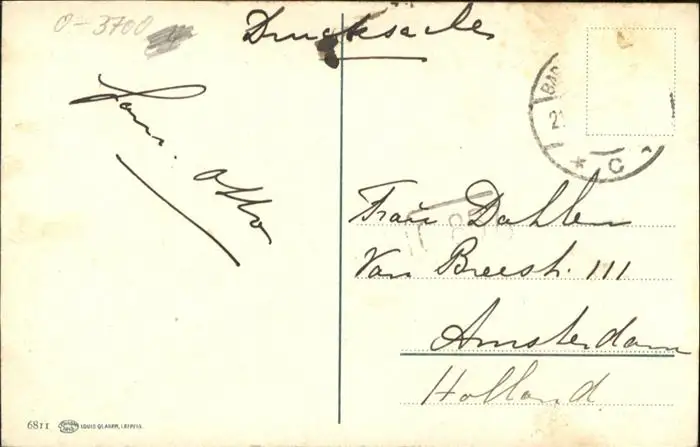 0-3700
Drucksache
Fam. Otto
BAD
2
* C
Frau Dahlen
Van Breestr. 111
Amsterdam
Holland
6811 LOUIS GLASER, LEIPZIG.